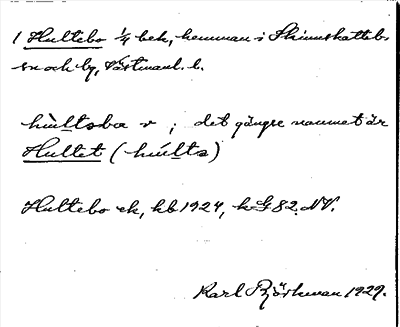 1 Hultebo 1/4 bek, hemman i Skinnskatteb.
sn och bg, Västmanl. l.
hùltsba v ; det gängse namnet är
Hultet (húlta)
Hultebo ek, kb 1924, k G 82 NV.
Karl Björkman 1929.